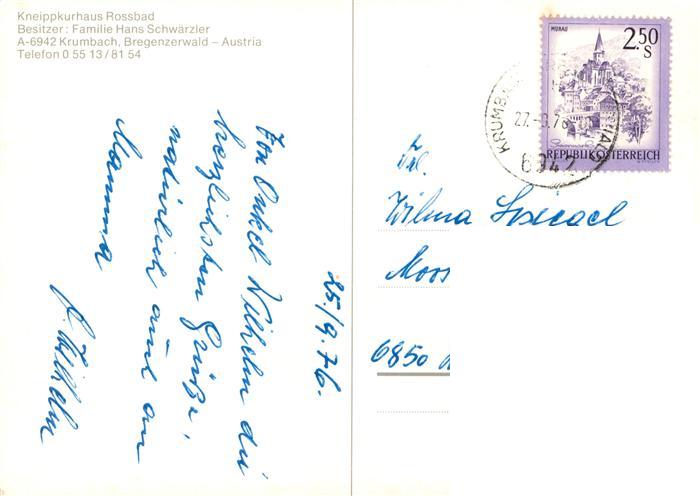 Kneippkurhaus Rossbad
Besitzer: Familie Hans Schwärzler
A-6942 Krumbach, Bregenzerwald – Austria
Telefon 0 55 13 / 81 54
25./9.76.
Von Onkel Wilhelm die
herzlichsten Grüße,
natürlich auch an
Mamma
Wilhelm
MURAU
2.50
S
REPUBLIK ÖSTERREICH
27.-9.76
6942
Frl.
Wilma
Moos
6850